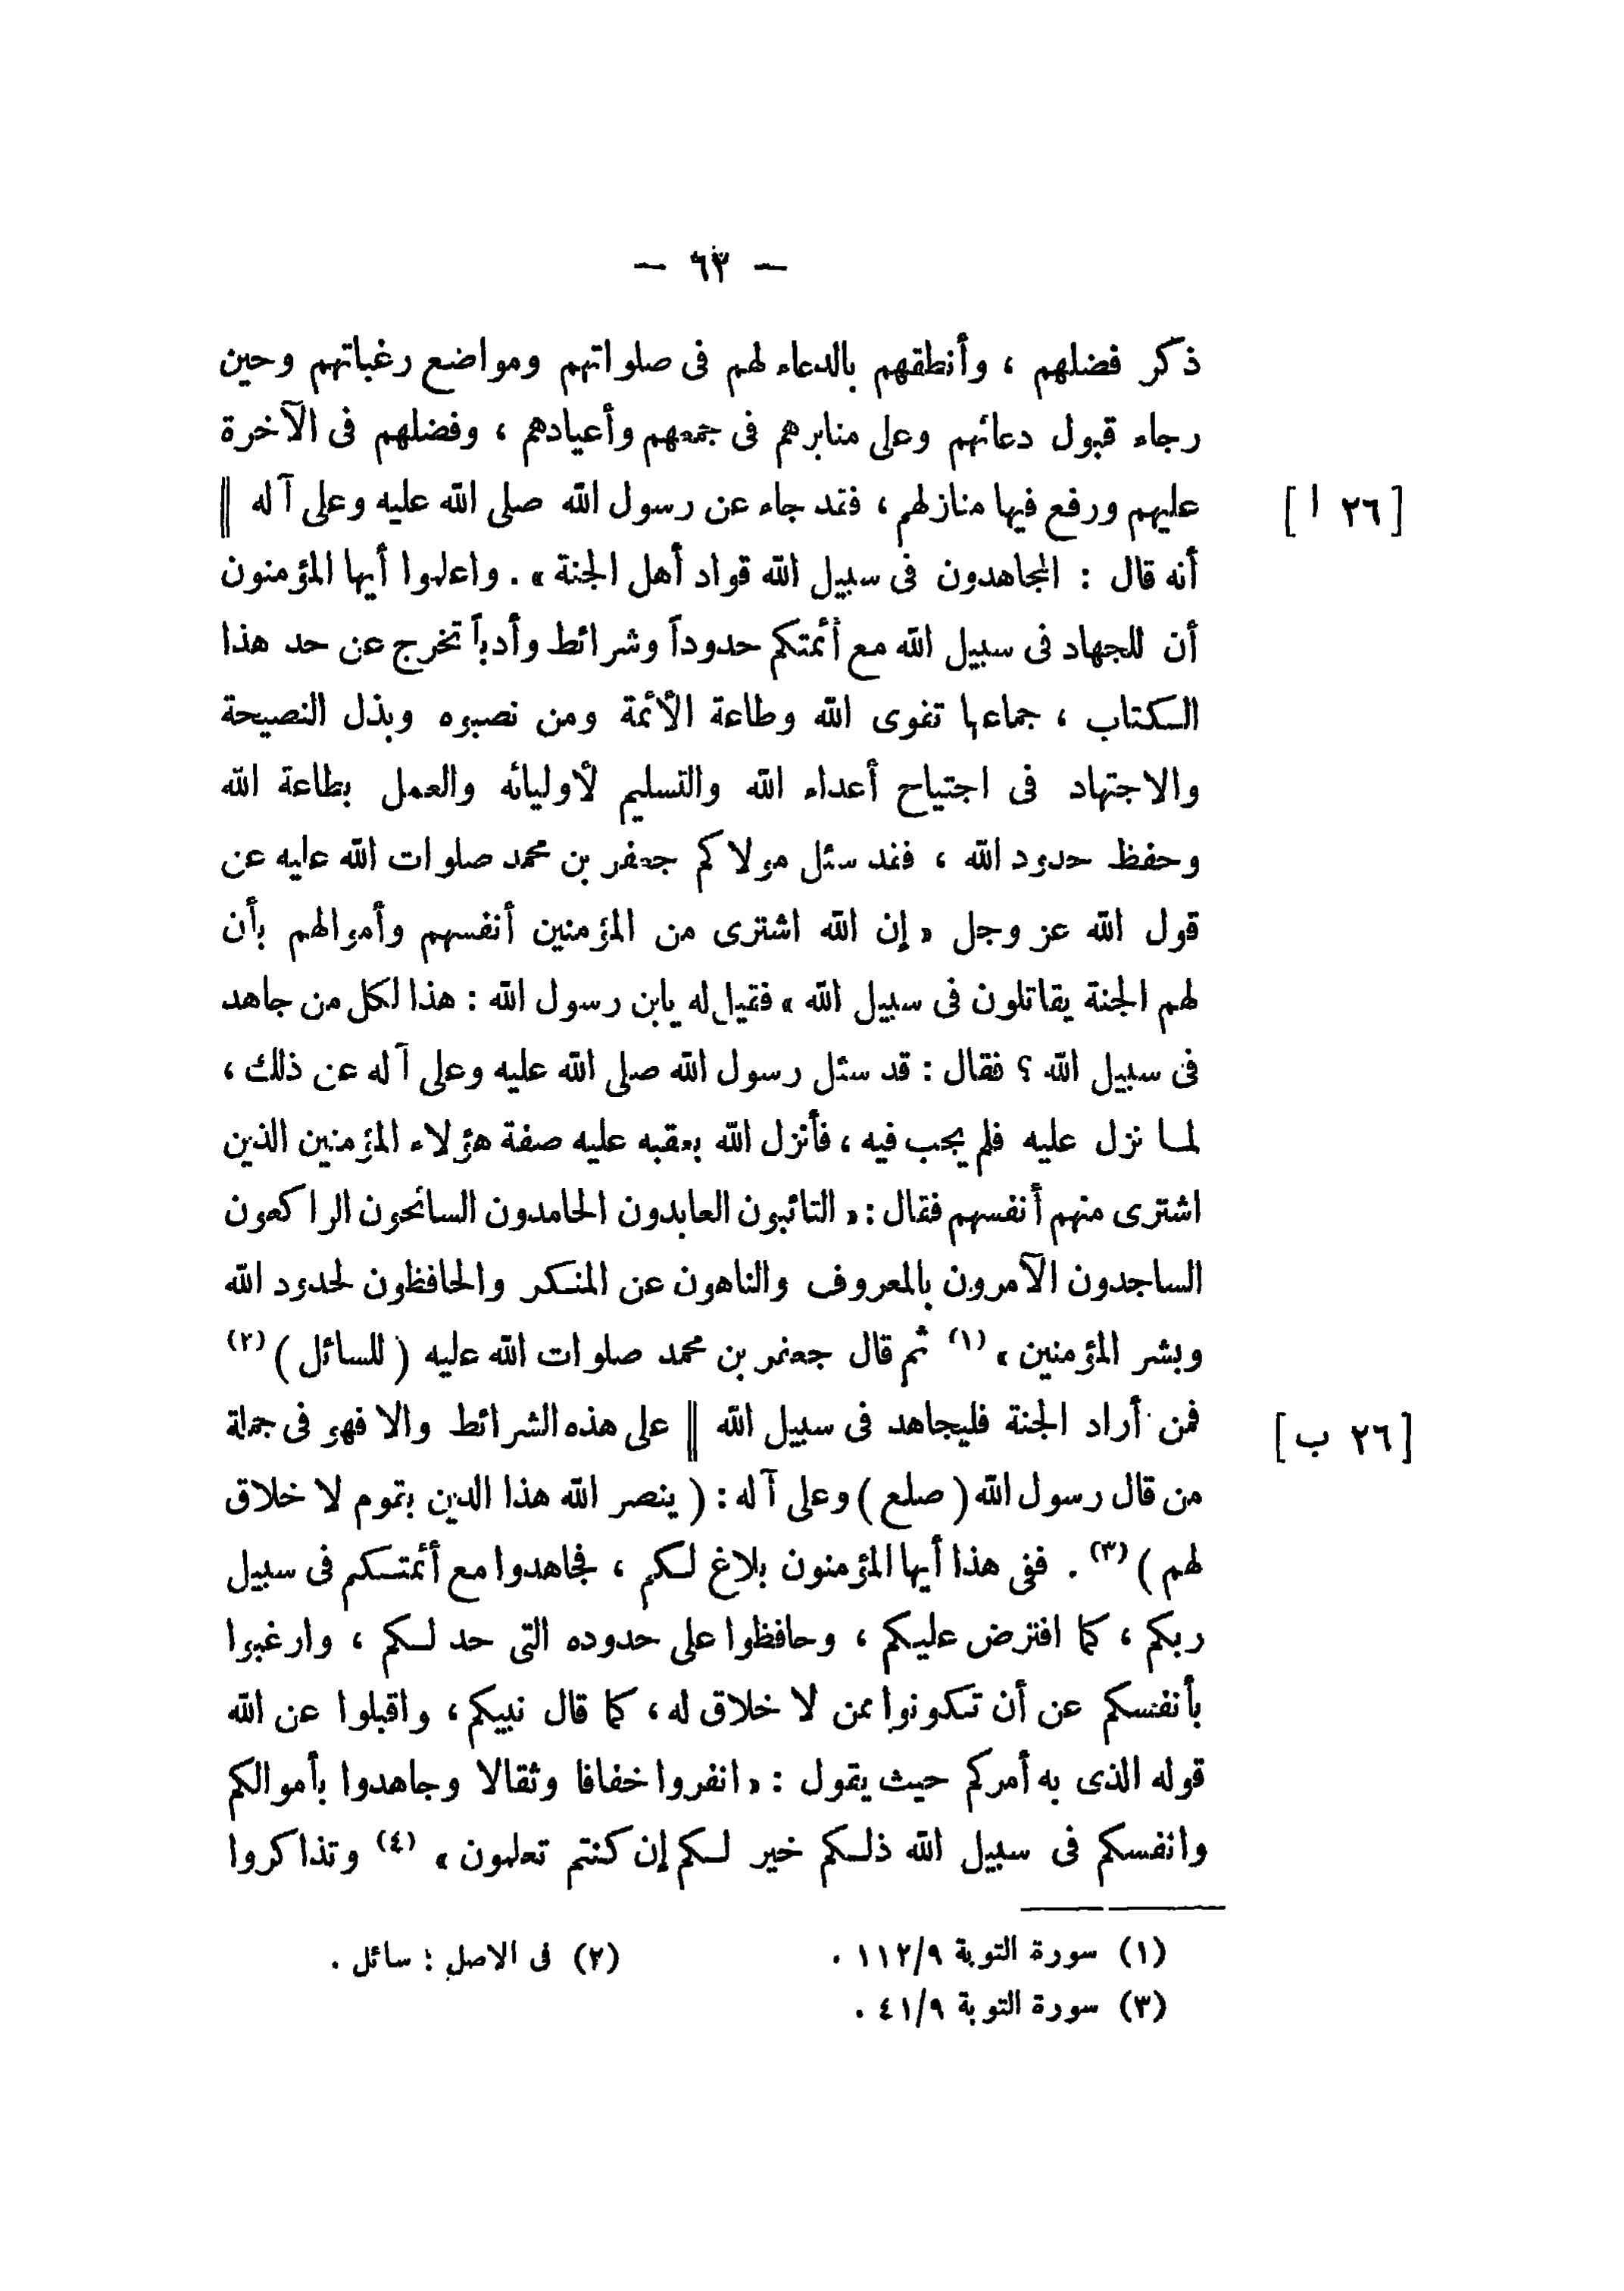 — ٦٣ —
ذكر فضلهم ، وأنطقهم بالدعاء لهم فى صلواتهم ومواضع رغباتهم وحين
رجاء قبول دعائهم وعلى منابرهم فى جمعهم وأعيادهم ، وفضلهم فى الآخرة
عليهم ورفع فيها منازلهم ، فقد جاء عن رسول الله صلى الله عليه وعلى آله ‖ [٢٦ ا]
أنه قال : المجاهدون فى سبيل الله قواد أهل الجنة » . واعلموا أيها المؤمنون
أن للجهاد فى سبيل الله مع أئمتكم حدوداً وشرائط وأدباً تخرج عن حد هذا
الكتاب ، جماعها تقوى الله وطاعة الأئمة ومن نصبوه وبذل النصيحة
والاجتهاد فى اجتياح أعداء الله والتسليم لأوليائه والعمل بطاعة الله
وحفظ حدود الله ، فقد سئل مولاكم جعفر بن محمد صلوات الله عليه عن
قول الله عز وجل « إن الله اشترى من المؤمنين أنفسهم وأموالهم بأن
لهم الجنة يقاتلون فى سبيل الله » فقيل له يابن رسول الله : هذا لكل من جاهد
فى سبيل الله ؟ فقال : قد سئل رسول الله صلى الله عليه وعلى آله عن ذلك ،
لما نزل عليه فلم يجب فيه ، فأنزل الله بعقبه عليه صفة هؤلاء المؤمنين الذين
اشترى منهم أنفسهم فقال : « التائبون العابدون الحامدون السائحون الراكعون
الساجدون الآمرون بالمعروف والناهون عن المنكر والحافظون لحدود الله
وبشر المؤمنين » (١) ثم قال جعفر بن محمد صلوات الله عليه ( للسائل ) (٢)
فمن أراد الجنة فليجاهد فى سبيل الله ‖ على هذه الشرائط والا فهو فى جملة [٢٦ ب]
من قال رسول الله ( صلع ) وعلى آله : ( ينصر الله هذا الدين بقوم لا خلاق
لهم ) (٣) . ففى هذا أيها المؤمنون بلاغ لكم ، فجاهدوا مع أئمتكم فى سبيل
ربكم ، كما افترض عليكم ، وحافظوا على حدوده التى حد لكم ، وارغبوا
بأنفسكم عن أن تكونوا ممن لا خلاق له ، كما قال نبيكم ، واقبلوا عن الله
قوله الذى به أمركم حيث يقول : « انفروا خفافا وثقالا وجاهدوا بأموالكم
وانفسكم فى سبيل الله ذلكم خير لكم إن كنتم تعلمون » (٤) وتذاكروا
(١) سورة التوبة ١١٢/٩ . (٢) فى الاصل : سائل .
(٣) سورة التوبة ٤١/٩ .